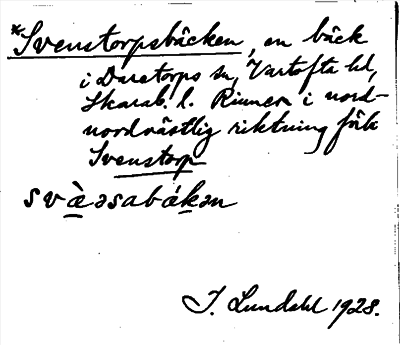 *Svenstorpsbäcken, en bäck
i Daretorps sn, Vartofta hd,
Skarab. l. Rinner i nord-
nordvästlig riktning förbi
Svenstorp
svà̱əsabáḵən
I. Lundahl 1928.